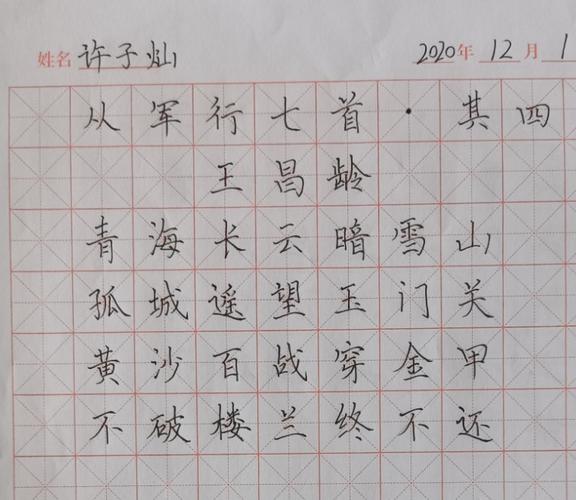 姓名 许子灿 2020年 12月 1
从军行七首·其四
王昌龄
青海长云暗雪山
孤城遥望玉门关
黄沙百战穿金甲
不破楼兰终不还